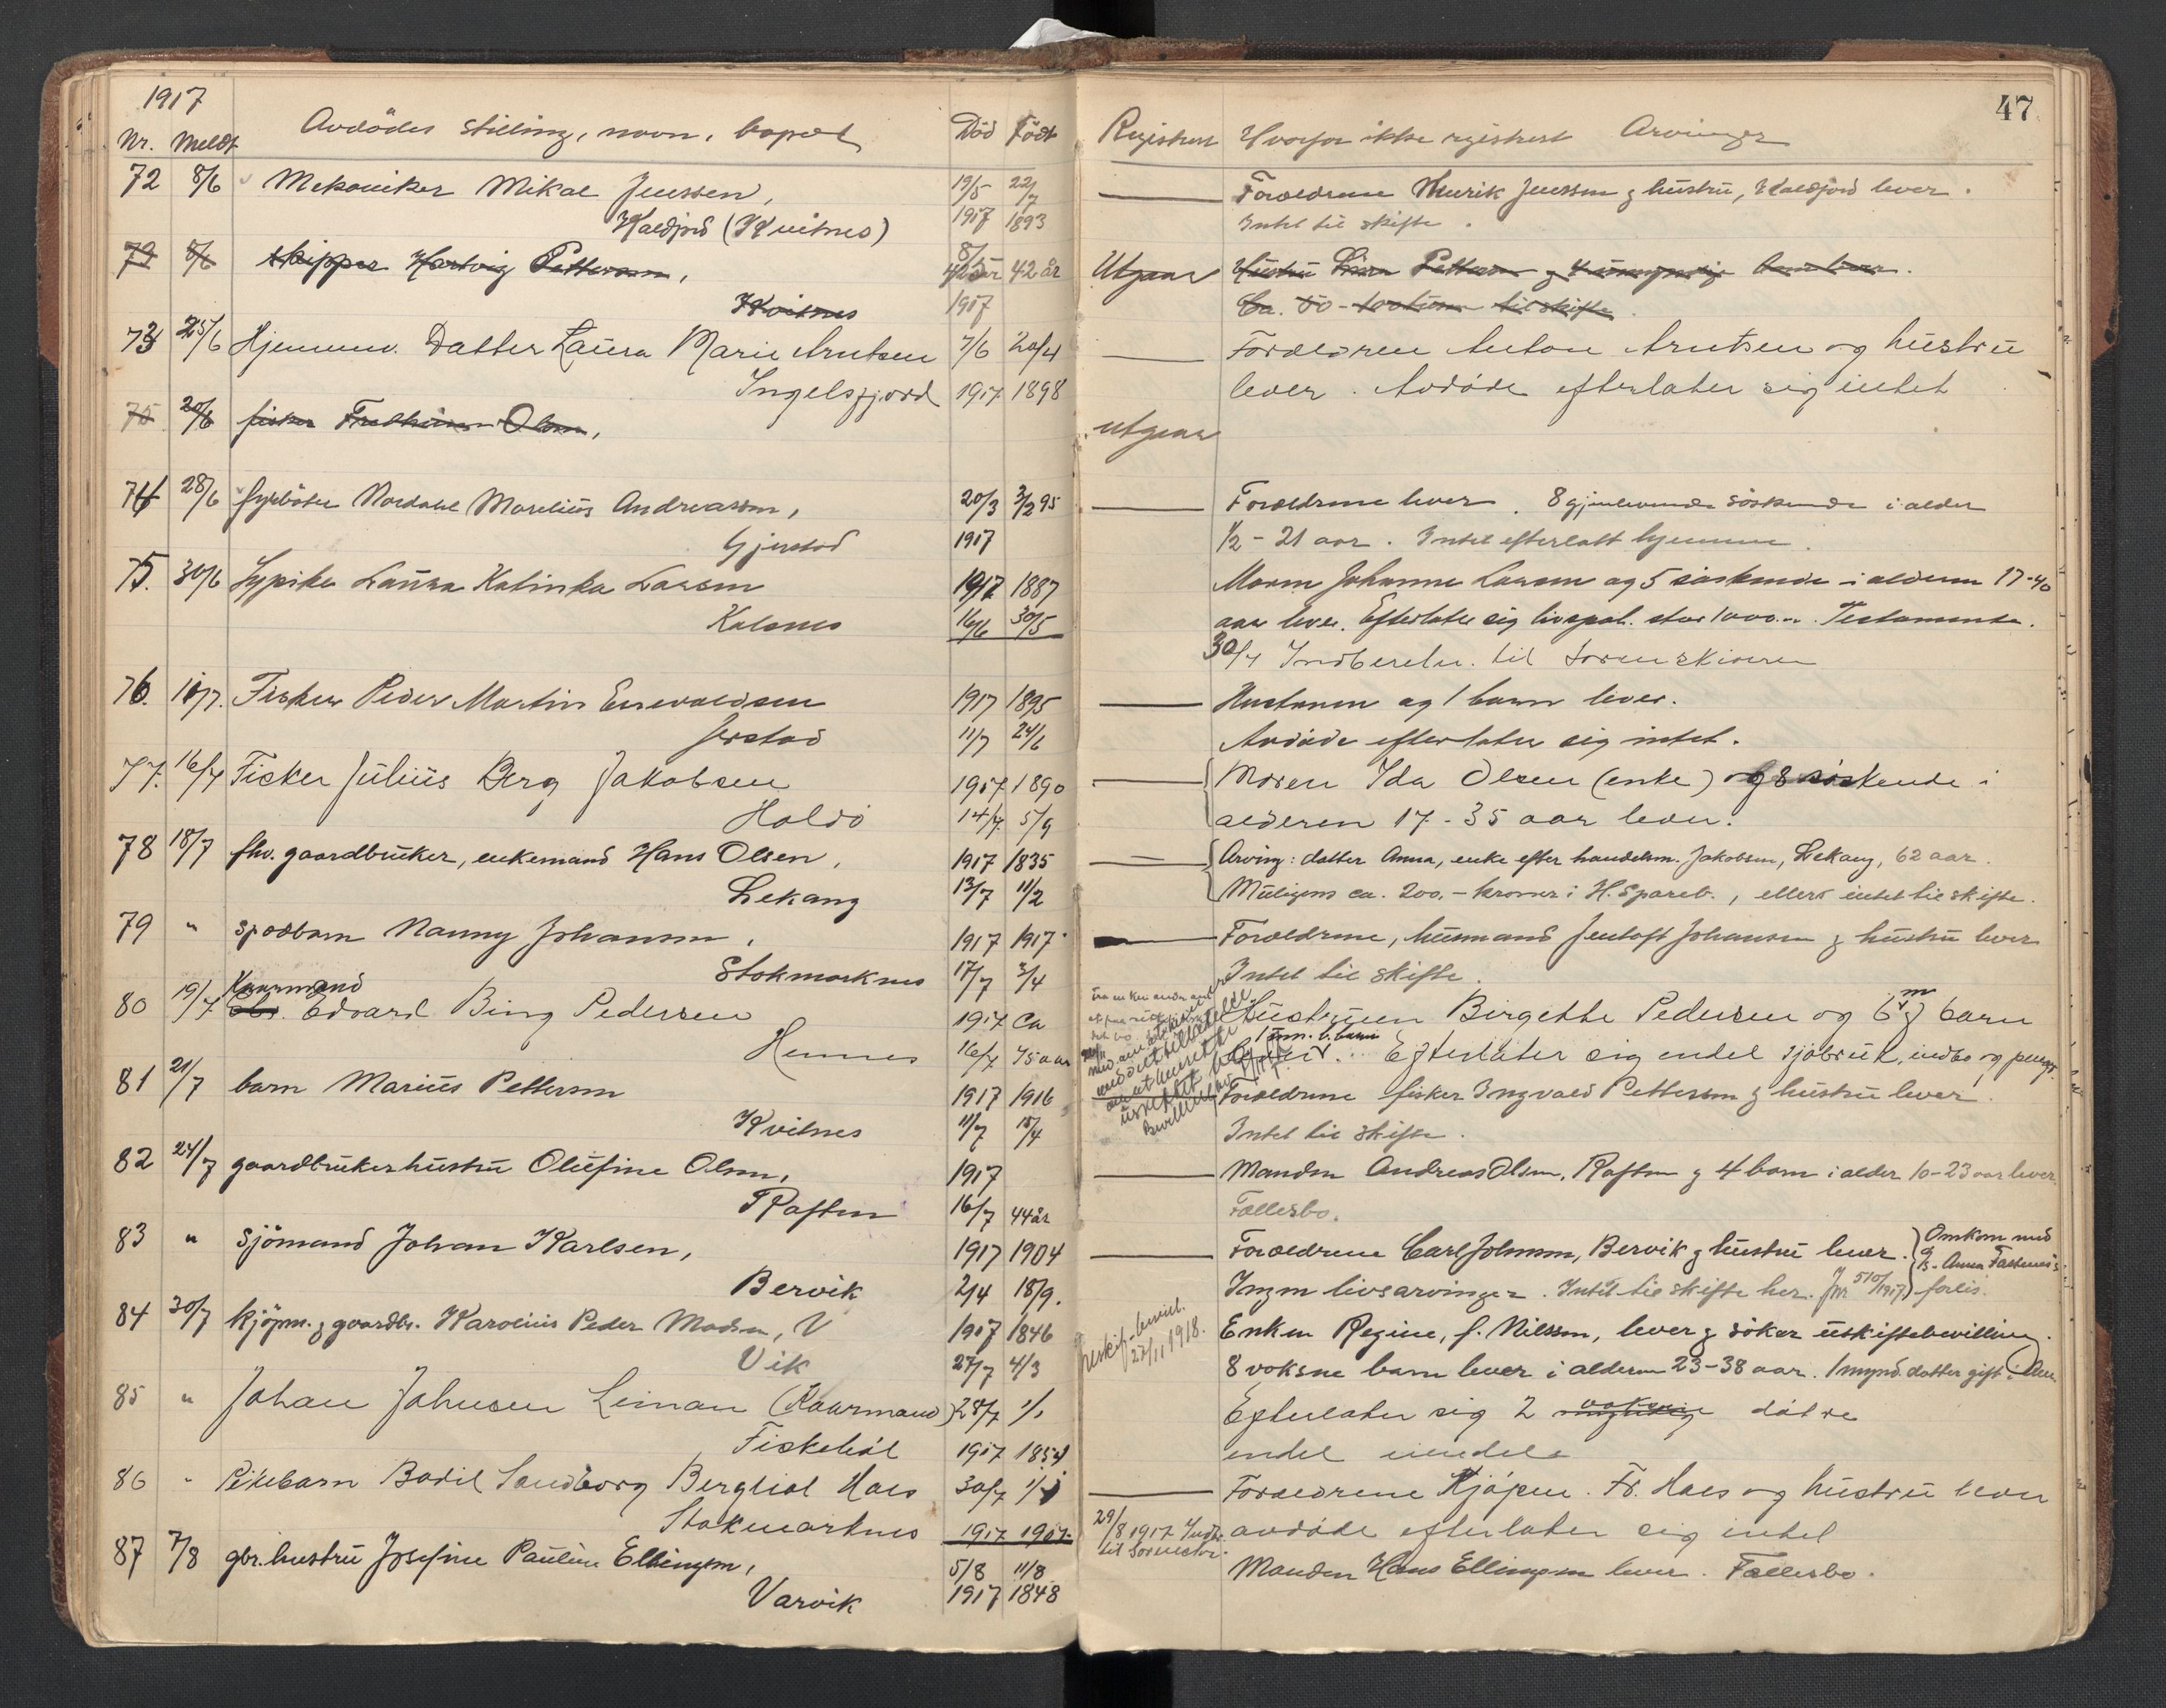 1917
47
Nr. Meldt Avdödes stilling, navn, bopæl Död Födt Registrert Hvorfor ikke registrert Arvinger
72 8/6 Mekaniker Mikal Jenssen, 19/5 22/7 Forældrene Henrik Jenssen & hustru, Kaldfjord lever.
Kaldfjord (Kvitnes) 1917 1893 Intet til skifte.
73 8/6 skipper Hartvig Pettersen, 8/ 42 år Utgaar Hustru Pettersen & 4 umyndige barn lever.
Kvitnes 1917 Ca. 50 til skifte.
73 25/6 Hjemmev. Datter Laura Marie Arntsen 7/6 20/4 Forældren Anton Arntsen og hustru
Ingelsfjord 1917 1898 lever. Avdøde efterlater sig intet
75 20/6 fisker Olsen, Utgaar
74 28/6 fyrböter Nordahl Marelius Andreassen, 20/3 3/2 95 Forældrene lever. 8 gjenlevende söskende i alder
Gjerstad 1917 1/2 - 21 aar. Intet efterlatt hjemme.
75. 30/6 Sypike Laura Katinka Larsen 1917 1887 Moren Johanne Larsen og 5 søskende i alderen 17-40
Kalsnes 16/6 30/5 aar lever. Efterlater sig livspol. stor 1000.-. Testamente.
30/7 Indberetn. til sorenskriveren
76. 10/7. Fisker Peder Martin Enevoldsen 1917 1895 Hustruen og 1 barn lever.
Jerstad 11/7 24/6 Avdøde efterlater sig intet.
77. 16/7 Fisker Julius Berg Jakobsen 1917 1890 Moren Ida Olsen (enke) og 8 søskende i
Haldö 14/7 5/9 alderen 17-35 aar lever.
78 18/7 fhv. gaardbruker, enkemand Hans Olsen, 1917 1835 Arving: datter Anna, enke efter handelsm. Jakobsen, Lekang, 62 aar.
Lekang 13/7 11/2 Muligens ca. 200,- kroner i H. Spareb., ellers intet til skifte.
79 " spædbarn Nanny Johansen, 1917 1917 Forældrene, husmand Jentoft Johansen & hustru lever
Stokmarknes 17/7 3/4 Intet til skifte.
80 19/7 Kaarmand Edvard Bing Pedersen 1917 ca Hustruen Birgethe Pedersen og 6 barn
Hennes 16/7 75 aar 1 um. b.barn lever. Efterlater sig endel sjøbruk, indbo og penge.
81 21/7 barn Marius Pettersen 1917 1916 Forældrene fisker Ingvald Pettersen & hustru lever.
Kvitnes 11/7 15/4 Intet til skifte.
82 24/7 gaardbrukerhustru Olufine Olsen, 1917 Manden Andreas Olsen, Raften & 4 barn i alder 10-23 aar lever.
Raften 16/7 44 år Fællesbo.
83 " sjömand Johan Karlsen, 1917 1904 Forældrene Carl Johnsen, Bervik & hustru lever. Omkom med
Bervik 2/4 18/9. Ingen livsarvinger. Intet til skifte her. Jnr 510/1917 forlis.
84 30/7 kjöpm. & gaardbr. Karolius Peder Madsen, V 1917 1846 Uskif-bevil. 27/11 1918. Enken Regine, f. Nilssen, lever & söker uskiftebevilling.
Vik 27/7 4/3 8 voksne barn lever i alderen 23-38 aar. 1 mynd. datter gift i Am.
85 " Johan Johnsen Leiman (Kaarmand) 28/7 1/1 Efterlater sig 2 voksne døtre
Fiskebøl 1917 1854 endel eiendele
86 " Pikebarn Bodil Sandborg Bergliot Haes 30/7 1/ Forældrene Kjøpm. Fr. Haes og hustru lever
Stokmarknes 1917 1917 29/8 1917 Indb. til Sorenskr. avdøde efterlater sig intet
87 7/8 gbr.hustru Josefine Pauline Ellingsen, 5/8 11/8 Manden Hans Ellingsen lever. Fællesbo.
Varvik 1917 1848